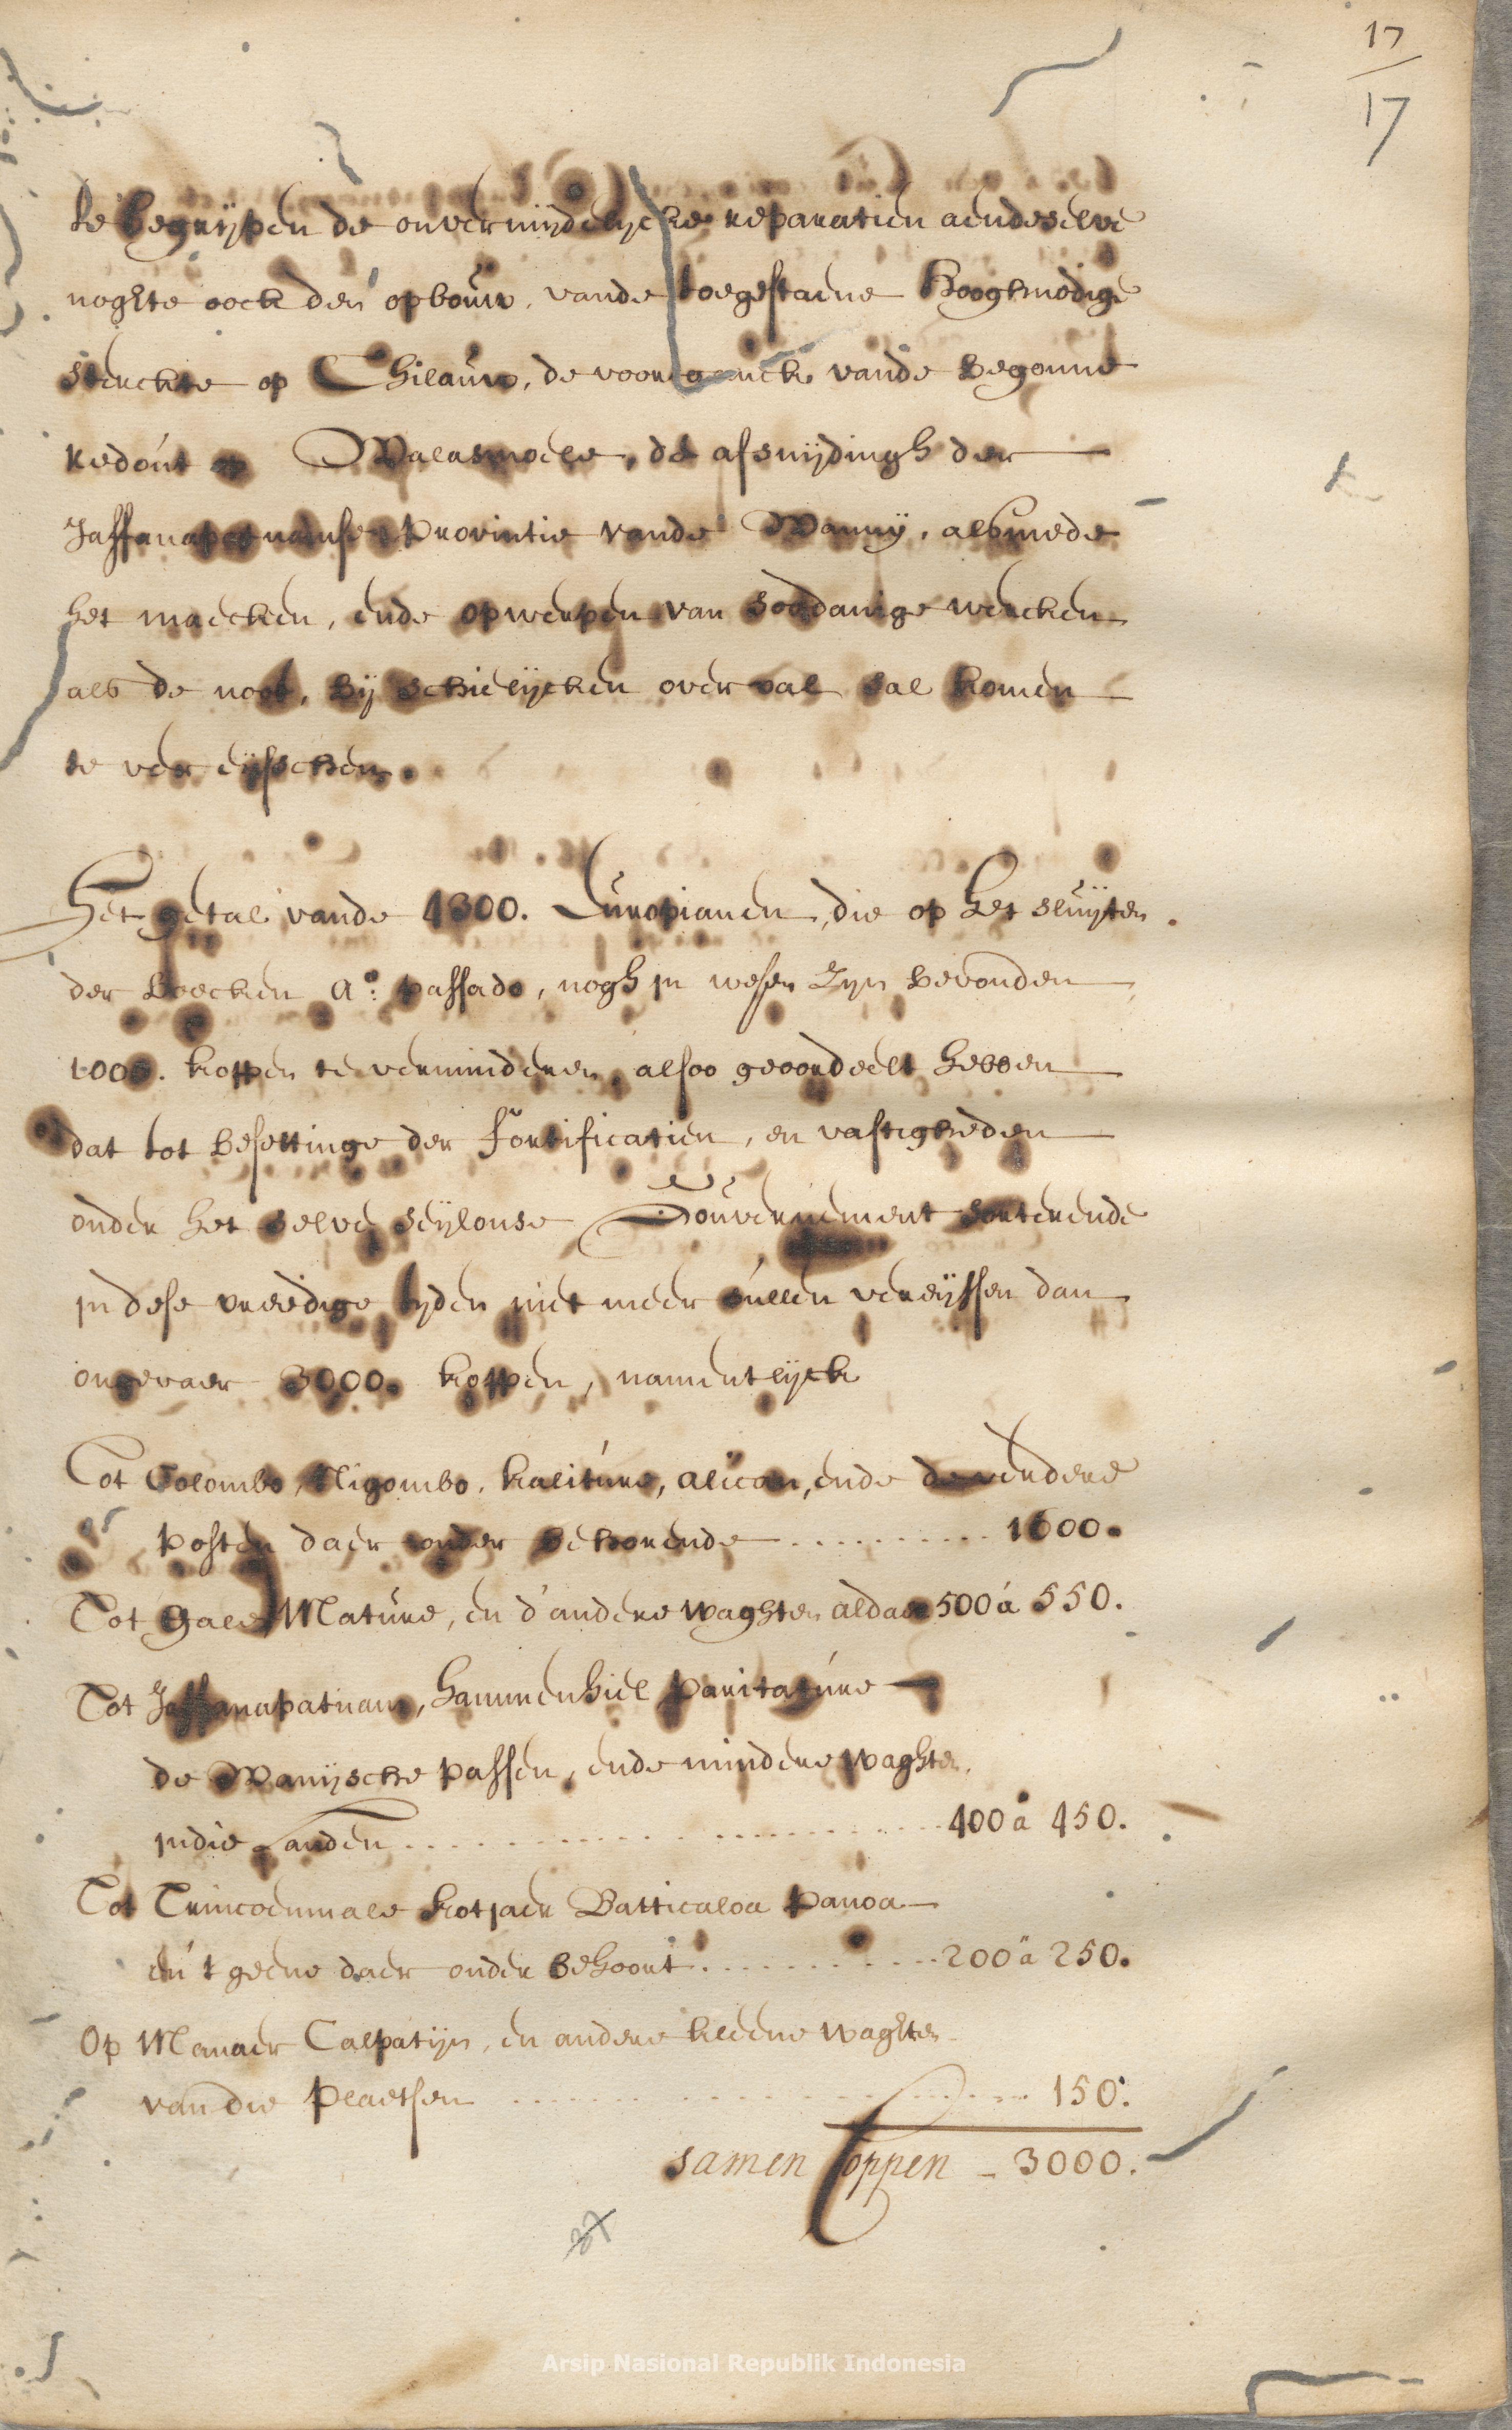 17
17
te begrijpen de onvermijdelycke reparatien aendeselve
noghte oock den opbouw, vande toegestaene Hooghnodige
sterckte op Chilauw, de voorganck vande begonne
redout op Malasmoele, de afsnijdingh der
Jaffanapatnamse Provintie vande Wanny, alsmede
het maecken, ende opwerpen van soodanige wercken
als de noot, bij schielijcken overval sal komen
te vereijsschen.
Het getal vande 4300. Europianen, die op het sluijten
der boecken Aº: passado, nogh in wesen zijn bevonden
1000. koppen te verminderen, alsoo geoordeelt hebben
dat tot besettinge der fortificatien, en vastigheden
onder het selve Seijlonse Gouvernement sorterende
in dese vreedige tyden niet meer sullen vereijssen dan
ongevaer 3000. koppen, namentlijck
Tot Colombo, Nigombo, kaliture, alican, ende de verdere
posten daer onder behorende .......... 1600.
Tot Gale, Mature, en d'andere waghten aldaer 500 á 550.
Tot Jaffanapatnam, Hammenhiel Paritature
de Wanijsche passen, ende mindere waghten
in die Landen .......... 400 á 450.
Tot Trincoenmale Kotjaer Batticaloa Panoa
en 't geene daer onder behoort .......... 200 á 250.
Op Manaer Calpatijn, en andere kleene waghten
van die Plaetsen .......... 150.
samen Coppen - 3000.
Arsip Nasional Republik Indonesia